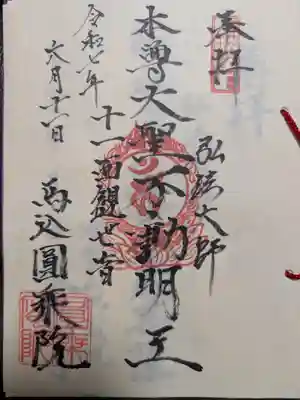 奉拝
弘法大師
本尊大聖不動明王
十一面観世音
令和七年
六月十一日
馬込圓乗院